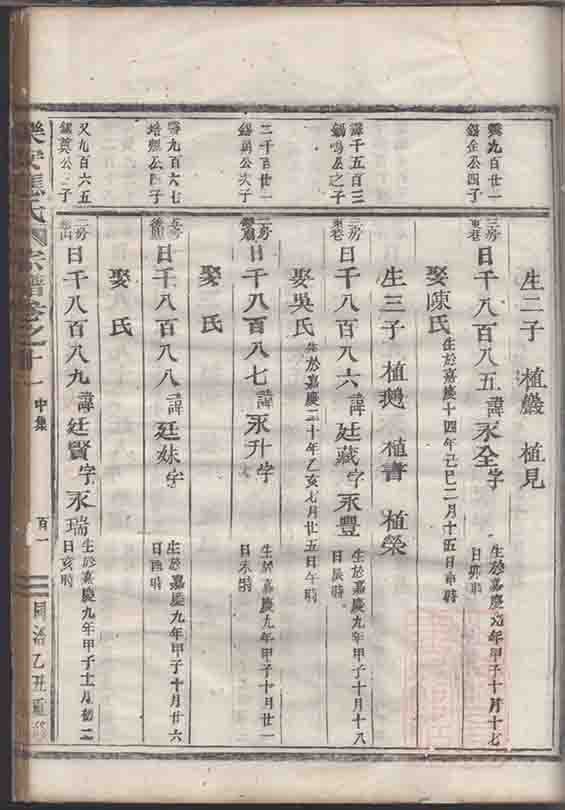 生二子 植嚴 植見
九百廿一
錫金公四子
三房
東巷
日千八百八五 諱永全 字
生於嘉慶九年甲子十月十七
日卯時
娶陳氏 生於嘉慶十四年己巳二月十五日申時
生三子 植鵝 植書 植榮
諱千五百三
錫鳴公之子
三房
東巷
日千八百八六 諱廷藏 字永豐
生於嘉慶九年甲子十月十八
日辰時
娶吳氏 生於嘉慶二十年乙亥七月廿五日午時
二千百廿一
公次子
二房
日千八百八七 諱永升 字
生於嘉慶九年甲子十月廿一
日未時
娶 氏
九百六七
培 公四子
日千八百八八 諱廷妹 字
生於嘉慶九年甲子十月廿六
日酉時
娶 氏
又九百六五
錫 公 子
二房
日千八百八九 諱廷賢 字永瑞
生於嘉慶九年甲子十二月初二
日亥時
樂安 氏 宗譜卷之十一 中集 百一 同治乙丑重修